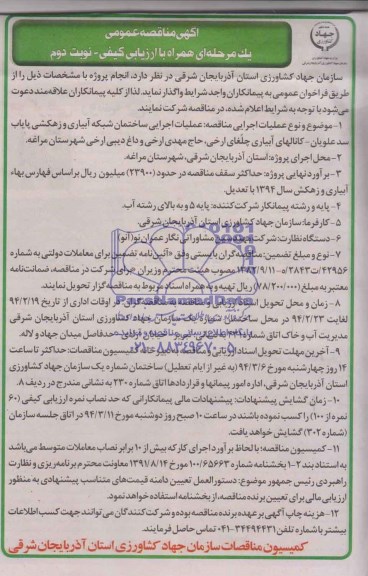 آگهی مناقصه عمومی
یك مرحله‌ای همراه با ارزیابی کیفی - نوبت دوم
سازمان جهاد کشاورزی استان آذربایجان شرقی در نظر دارد، انجام پروژه با مشخصات ذیل را از
طریق فراخوان عمومی به پیمانکاران واجد شرایط واگذار نماید. لذا از کلیه پیمانکاران علاقه‌مند دعوت
می‌شود با توجه به شرایط اعلام شده، در مناقصه شرکت نمایند.
۱- موضوع و نوع عملیات اجرایی مناقصه: عملیات اجرایی ساختمان شبکه آبیاری و زهکشی پایاب
سد علویان - کانالهای آبیاری چلغای ارخی، حاج مهدی ارخی و داغ دیبی ارخی شهرستان مراغه.
۲- محل اجرای پروژه: استان آذربایجان شرقی، شهرستان مراغه.
۳- برآورد نهایی پروژه: حداکثر سقف مناقصه در حدود (۲۳۹۰۰) میلیون ریال براساس فهارس بهاء
آبیاری و زهکش سال ۱۳۹۴ با تعدیل.
۴- پایه و رشته پیمانکار شرکت‌کننده: پایه ۵ و به بالای رشته آب.
۵- کارفرما: سازمان جهاد کشاورزی استان آذربایجان شرقی.
۶- دستگاه نظارت: شرکت مهندسی مشاوراتی نگار عمران نوا
۷- نوع و مبلغ تضمین: مناقصه‌گران بایستی وفق «آئین‌نامه تضمین برای معاملات دولتی به شماره
مصوب هیئت محترم وزیران جرای شرکت در مناقصه، ضمانت‌نامه
معتبر به مبلغ ریال تهیه و به همراه اسناد مربوط به مناقصه‌گزار تحویل نمایند.
۸- زمان و محل تحویل اسناد در اوقات اداری از تاریخ ۹۴/۲/۱۹
لغایت ۹۴/۲/۲۳ در محل ساختمان شماره یک سازمان جهاد کشاورزی استان آذربایجان شرقی
مدیریت آب و خاک اتاق شماره حدفاصل میدان جهاد و لاله.
۹- آخرین مهلت تحویل اسناد کمیسیون مناقصات: حداکثر تا ساعت
۱۴ روز چهارشنبه مورخ ۹۴/۳/۶ (به غیر از ایام تعطیل) ساختمان شماره یک سازمان جهاد کشاورزی
استان آذربایجان شرقی، اداره امور پیمانها و قراردادها اتاق شماره ۲۳۰ به نشانی مندرج در ردیف ۸.
۱۰- زمان گشایش پیشنهادات: پیشنهادات مالی پیمانکارانی که حد نصاب نمره ارزیابی کیفی (۶۰
نمره از ۱۰۰) را کسب نموده باشند در ساعت ۱۰ صبح روز دوشنبه مورخ ۹۴/۳/۱۱ در اتاق جلسه سازمان
(شماره ۳۰۲) گشایش خواهد یافت.
۱۱- کمیسیون مناقصه: با لحاظ برآورد اجرای کار که بیش از ۱۰ برابر نصاب معاملات متوسط می‌باشد
به استناد بند ۲-۱ بخشنامه شماره ۱۰۰/۶۵۶۶۳ مورخ ۱۳۹۱/۸/۱۴ معاونت محترم برنامه‌ریزی و نظارت
راهبردی رئیس جمهور موضوع: دستورالعمل تعیین دامنه قیمت‌های متناسب پیشنهادی به منظور
ارزیابی مالی برای تعیین برنده مناقصه، از بخشنامه استفاده خواهد نمود.
۱۲- هزینه چاپ آگهی بر عهده برنده مناقصه بوده و شرکت‌کنندگان می‌توانند جهت کسب اطلاعات
بیشتر با شماره تلفن ۳۴۴۹۴۴۳۱-۰۴۱ تماس حاصل فرمایند.
کمیسیون مناقصات سازمان جهاد کشاورزی استان آذربایجان شرقی